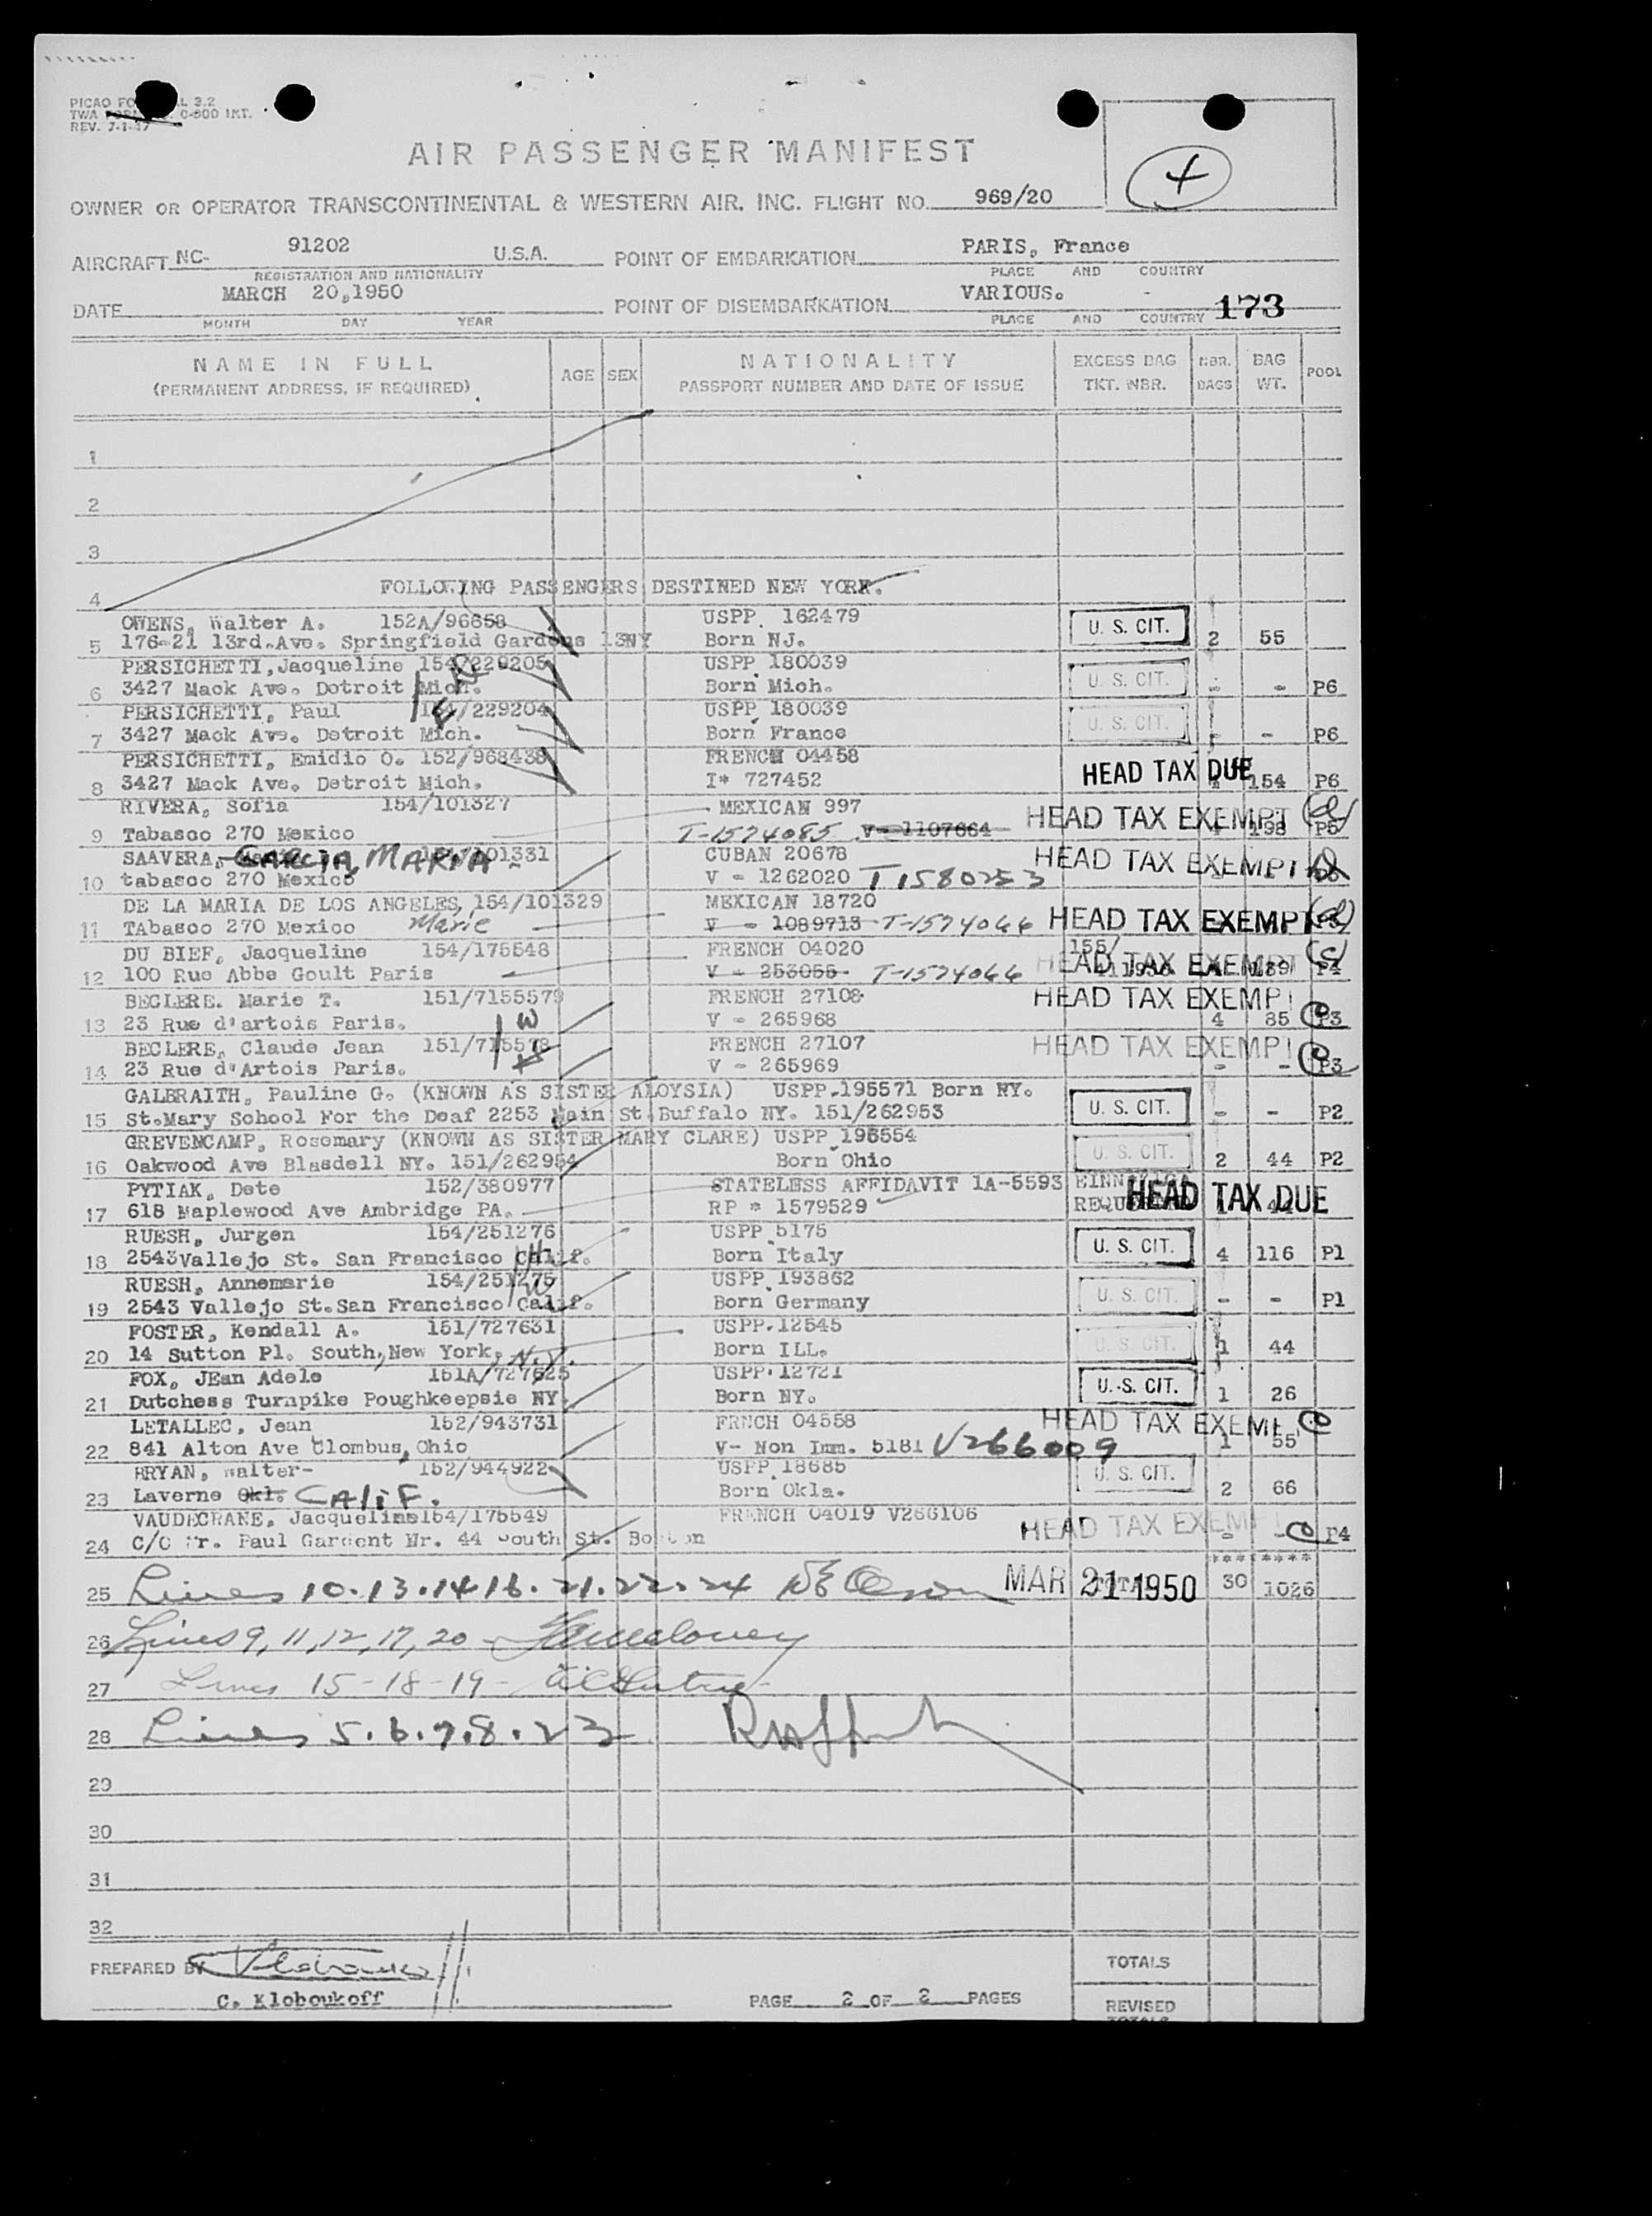 PICAO FO L 3.2
TWA C-800 INT.
REV. 7-1-47
AIR PASSENGER MANIFEST
4
OWNER OR OPERATOR TRANSCONTINENTAL & WESTERN AIR, INC. FLIGHT NO. 969/20
AIRCRAFT NC- 91202 U.S.A. POINT OF EMBARKATION PARIS, France
REGISTRATION AND NATIONALITY PLACE AND COUNTRY
DATE MARCH 20,1950 POINT OF DISEMBARKATION VARIOUS. 173
MONTH DAY YEAR PLACE AND COUNTRY
NAME IN FULL AGE SEX NATIONALITY EXCESS BAG NBR. BAG POOL
(PERMANENT ADDRESS, IF REQUIRED) PASSPORT NUMBER AND DATE OF ISSUE TKT. NBR. BAGS WT.
1
2
3
4 FOLLOWING PASSENGERS DESTINED NEW YORK.
OWENS, Walter A. 152A/96658 USPP. 162479 U. S. CIT.
5 176-21 13rd.Ave. Springfield Gardens 13NY Born NJ. 2 55
PERSICHETTI,Jacqueline 154/229205 USPP 180039 U. S. CIT.
6 3427 Mack Ave. Dotroit Mich. Born Mich. - - P6
PERSICHETTI, Paul 154/229204 USPP 180039 U. S. CIT.
7 3427 Mack Ave. Detroit Mich. Born France - - P6
PERSICHETTI, Emidio O. 152/968438 FRENCH 04458 HEAD TAX DUE
8 3427 Mack Ave. Detroit Mich. I* 727452 154 P6
RIVERA, Sofia 154/101327 MEXICAN 997 HEAD TAX EXEMPT
9 Tabasco 270 Mexico T-1574085 V- 1107664 198 P5
SAAVERA, GARCIA, MARIA 101331 CUBAN 20678 HEAD TAX EXEMPT
10 tabasco 270 Mexico V - 1262020 T1580253
DE LA MARIA DE LOS ANGELES, 154/101329 MEXICAN 18720 HEAD TAX EXEMPT
11 TAbasoo 270 Mexico Marie V - 1089713 T-1574066
DU BIEF, Jacqueline 154/175548 FRENCH 04020 155/ HEAD TAX EXEMPT
12 100 Rue Abbe Goult Paris V - 253055 T-1574066 P4
BECLERE. Marie T. 151/7155579 FRENCH 27108 HEAD TAX EXEMP
13 23 Rue d'artois Paris. W V - 265968 4 85 P3
BECLERE, Claude Jean 151/715578 FRENCH 27107 HEAD TAX EXEMP
14 23 Rue d'Artois Paris. V - 265969 - - P3
GALBRAITH, Pauline G. (KNOWN AS SISTER ALOYSIA) USPP.195571 Born NY. U. S. CIT.
15 St.Mary School For the Deaf 2253 Main St.Buffalo NY. 151/262953 - - P2
GREVENCAMP, Rosemary (KNOWN AS SISTER MARY CLARE) USPP 195554 U. S. CIT.
16 Oakwood Ave Blasdell NY. 151/262954 Born Ohio 2 44 P2
PYTIAK, Dete 152/380977 STATELESS AFFIDAVIT 1A-5593 HEAD TAX DUE
17 618 Maplewood Ave Ambridge PA. RP * 1579529
RUESH, Jurgen 154/251276 USPP 5175 U. S. CIT.
18 2543Vallejo St. San Francisco Calif. H Born Italy 4 116 P1
RUESH, Annemarie 154/251275 USPP 193862 U. S. CIT.
19 2543 Vallejo St.San Francisco Calif. W Born Germany - - P1
FOSTER, Kendall A. 151/727631 USPP.12545 U. S. CIT.
20 14 Sutton Pl. South,New York, N.Y. Born ILL. 1 44
FOX, JEan Adele 151A/727625 USPP.12721 U. S. CIT.
21 Dutchess Turnpike Poughkeepsie NY. Born NY. 1 26
LETALLEC, Jean 152/943731 FRNCH 04558 HEAD TAX EXEMP
22 841 Alton Ave Clombus, Ohio V- Non Imm. 5181 V266009 1 55
BRYAN, Walter- 152/944922 USPP 18685 U. S. CIT.
23 Laverne Okl. CALIF. Born Okla. 2 66
VAUDECRANE, Jacqueline154/175549 FRENCH 04019 V266106 HEAD TAX EXEMP
24 C/O Mr. Paul Gardent Mr. 44 South St. Boston - - P4
********
25 Lines 10.13.14.16.21.22.24 MAR 21 1950 TOTAL 30 1026
26 Lines 9, 11, 12, 17, 20 -
27 Lines 15-18-19-
28 Lines 5.6.7.8.23
29
30
31
32
PREPARED BY
C. Kloboukoff
PAGE 2 OF 2 PAGES
TOTALS
REVISED
TOTALS